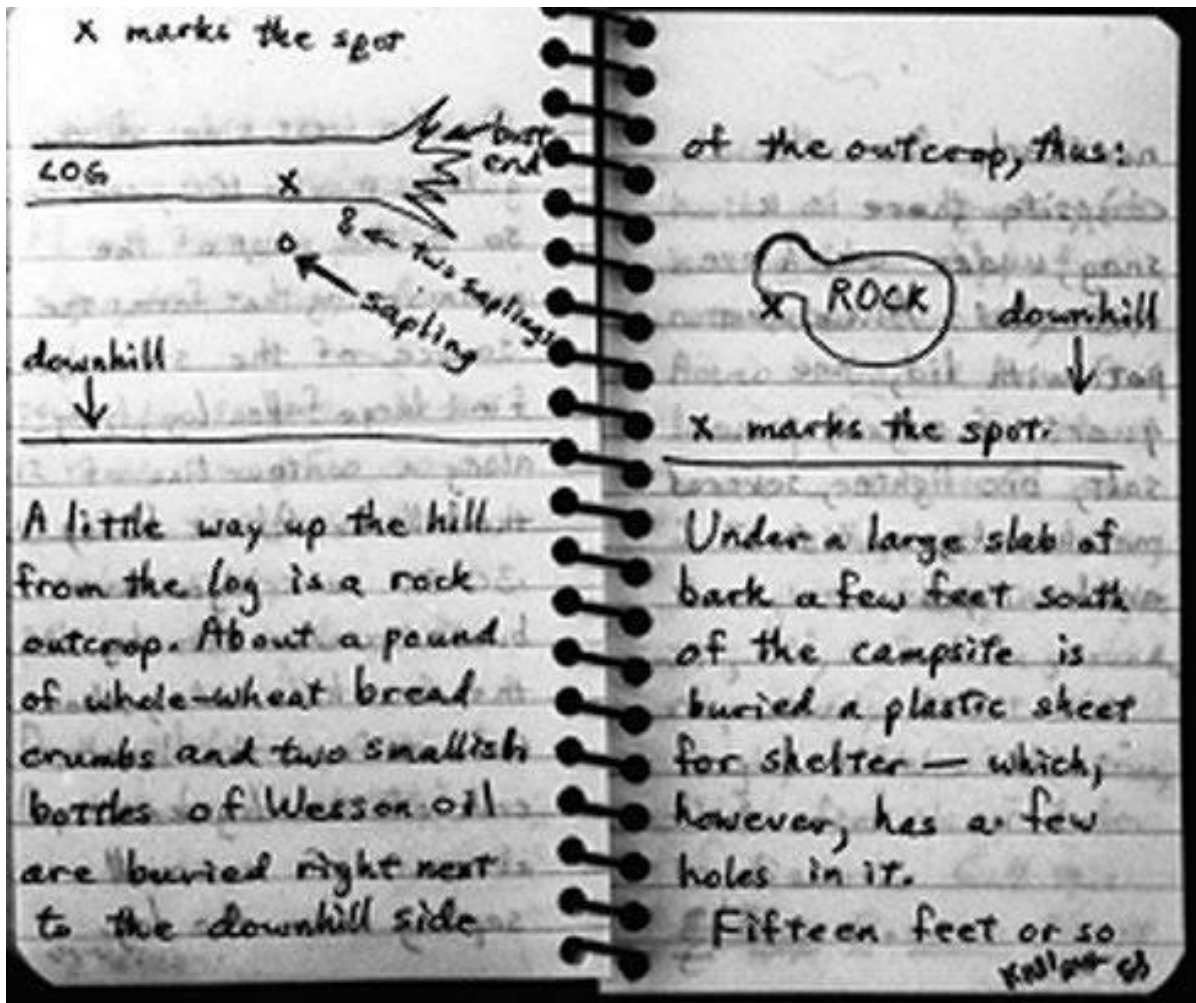 x marks the spot
burst
end
LOG
x
8 ← two saplings
o
sapling
downhill
A little way up the hill
from the log is a rock
outcrop. About a pound
of whole-wheat bread
crumbs and two smallish
bottles of Wesson oil
are buried right next
to the downhill side
of the outcrop, thus:
ROCK
x
downhill
x marks the spot.
Under a large slab of
bark a few feet south
of the campsite is
buried a plastic sheet
for shelter — which,
however, has a few
holes in it.
Fifteen feet or so